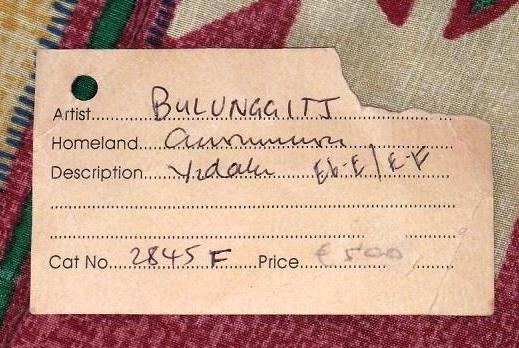 Artist.......... BULUNGGITJ
Homeland..........
Description.......... Yidaki Eb-E/E-F
Cat No.......... 2845 F ..........Price.......... £500 ..........